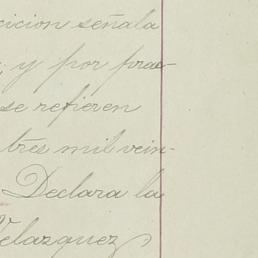 cicion señala
; y por frac-
se refieren
tres mil vein-
Declara la
Velazquez